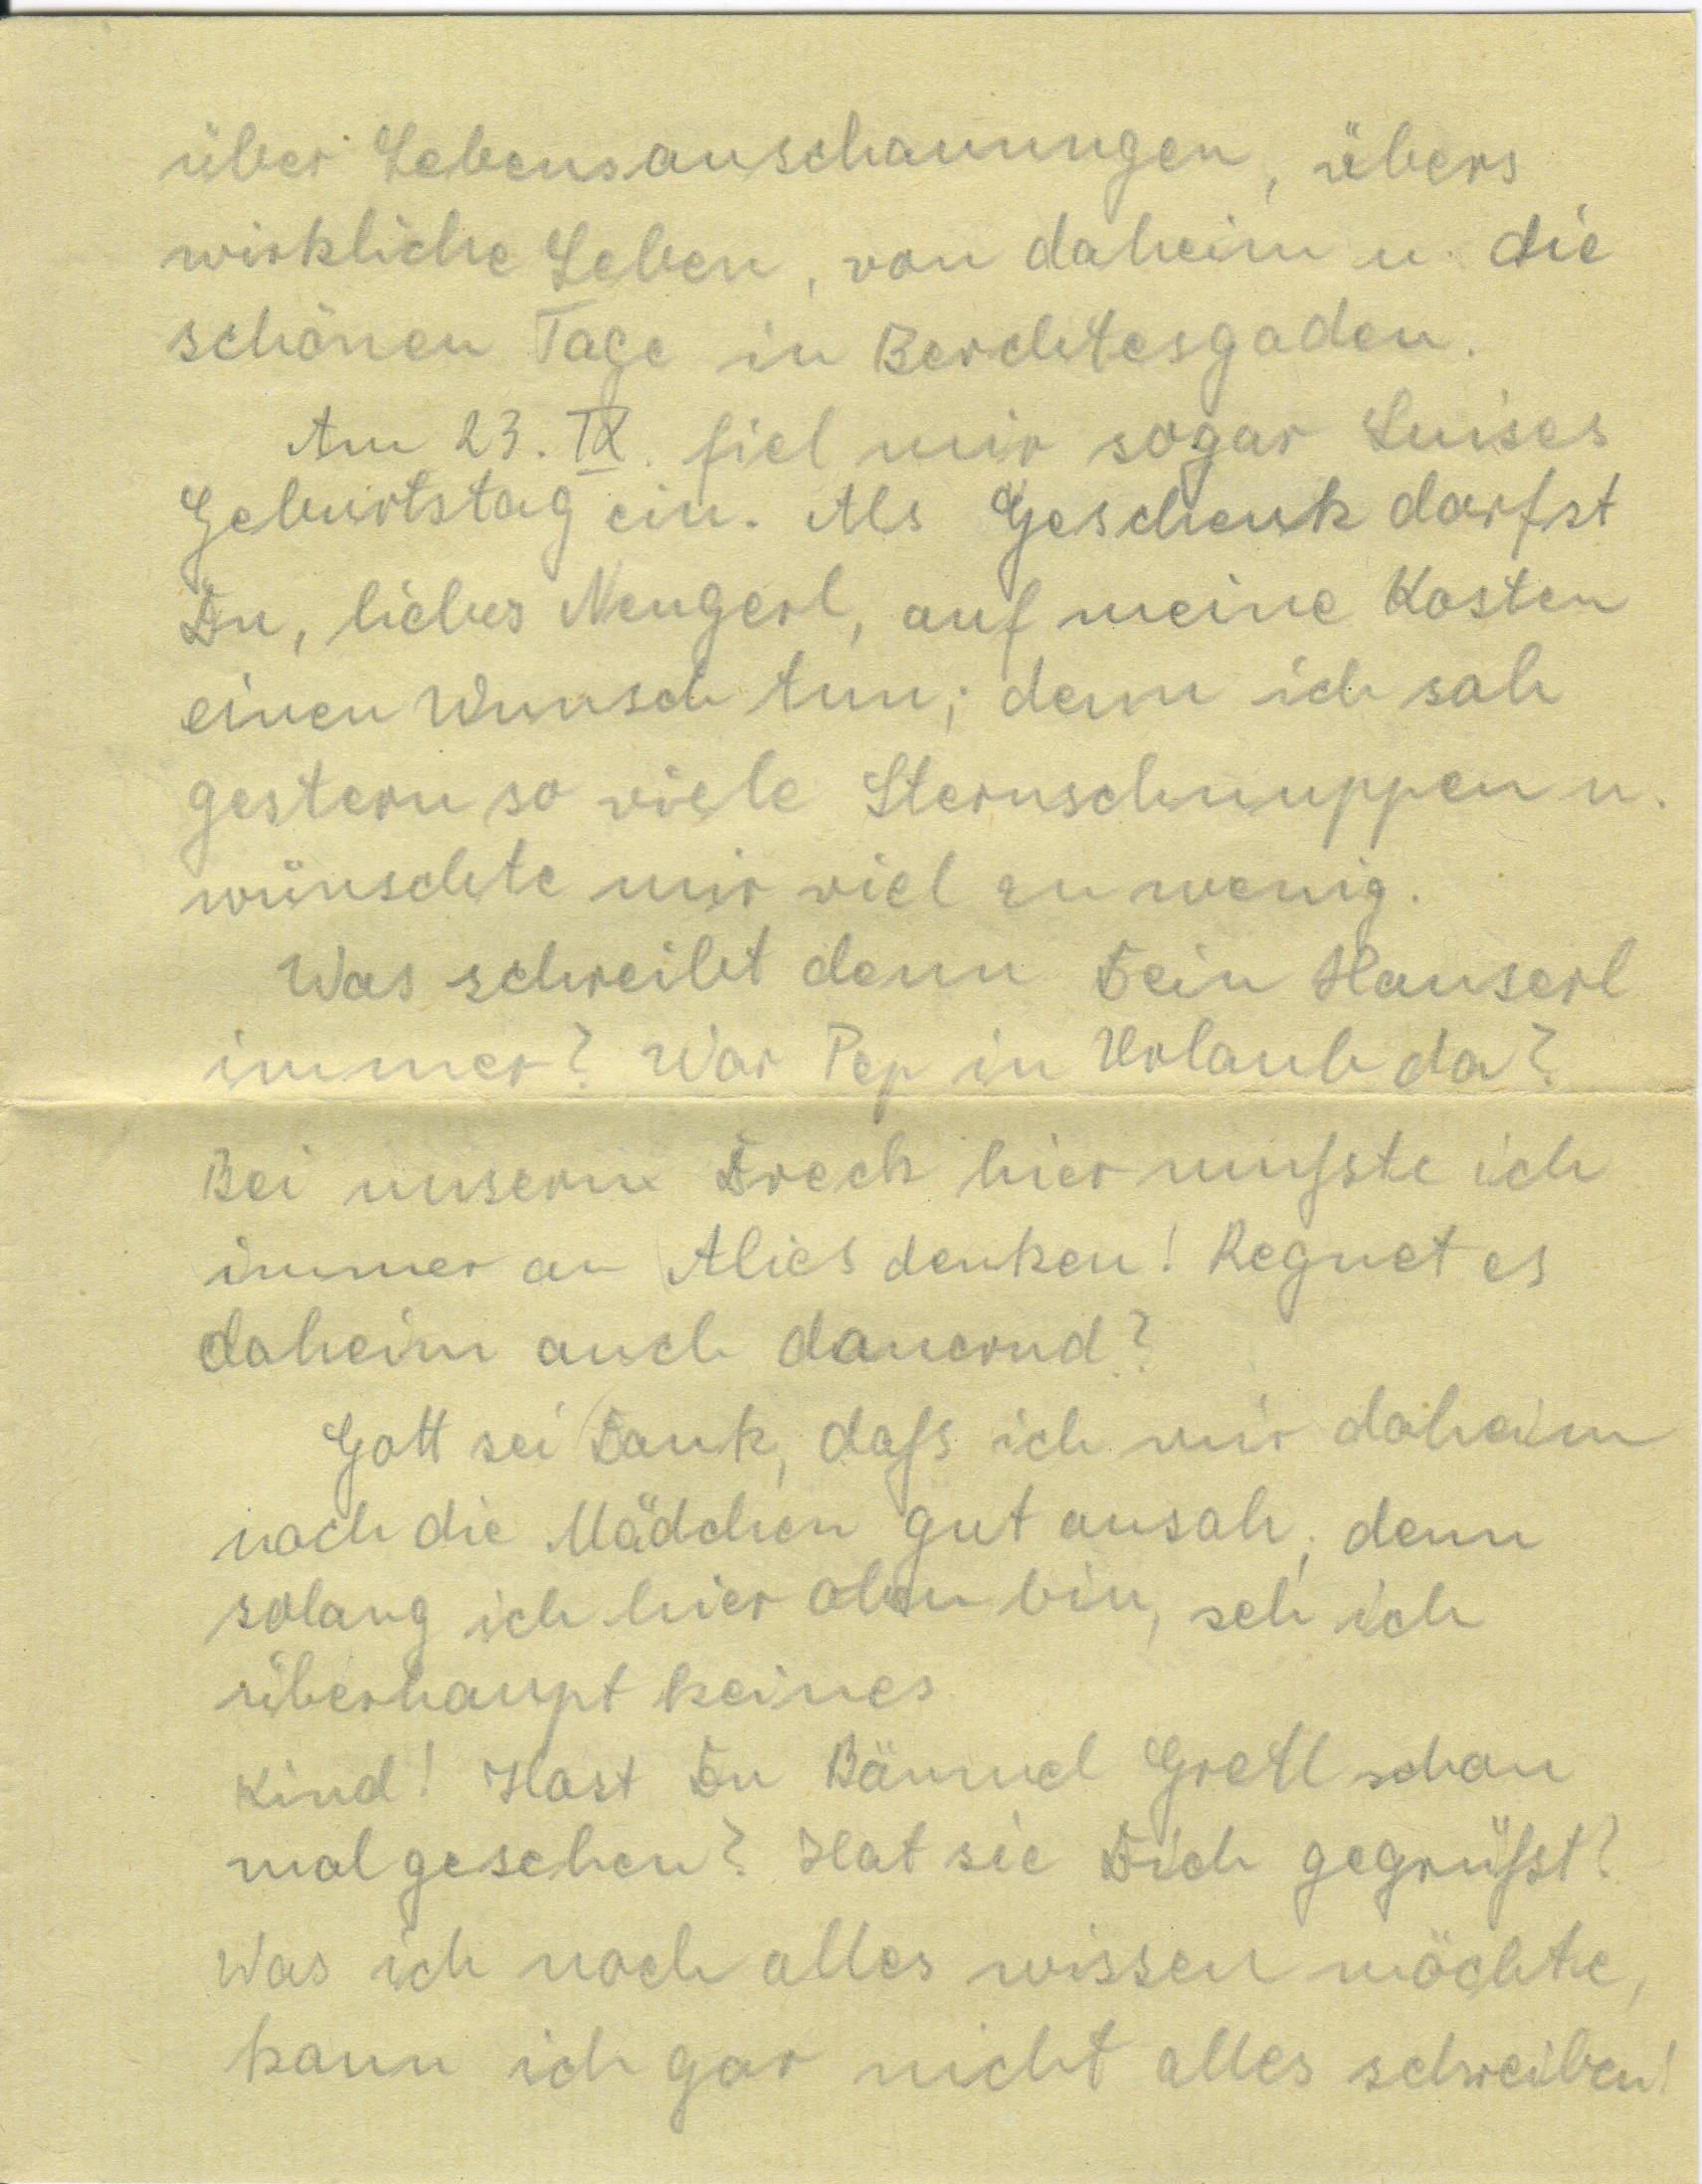 über Lebensanschauungen, übers
wirkliche Leben, von daheim u. die
schönen Tage in Berchtesgaden.
Am 23. IX. fiel mir sogar Luises
Geburtstag ein. Als Geschenk darfst
Du, liebes Neugerl, auf meine Kosten
einen Wunsch tun; denn ich sah
gestern so viele Sternschnuppen u.
wünschte mir viel zu wenig.
Was schreibt denn Dein Hanserl
immer? War Pep in Urlaub da?
Bei unserm Dreck hier mußte ich
immer an denken! Regnet es
daheim auch dauernd?
Gott sei Dank, daß ich mir daheim
noch die Mädchen gut ansah; denn
solang ich hier oben bin, seh ich
überhaupt keines
Kind! Hast Du Gretl schon
mal gesehen? Hat sie Dich gegrüßt?
Was ich noch alles wissen möchte,
kann ich gar nicht alles schreiben!